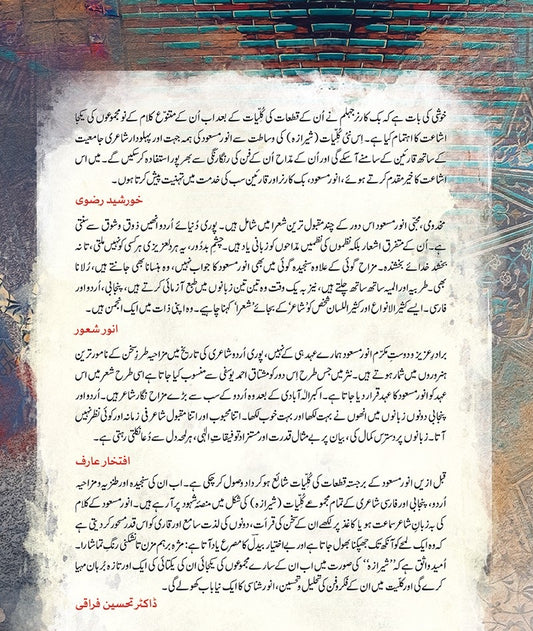 خوشی کی بات ہے کہ بک کارنر جہلم نے اُن کے قطعات کی کُلیات کے بعد اب اُن کے متنوع کلام کے نو مجموعوں کی یکجا
اشاعت کا اہتمام کیا ہے۔ اِس نئی کلیات (شیرازہ) کی وساطت سے انور مسعود کی ہمہ جہت اور پہلودار شاعری جامعیت
کے ساتھ قارئین کے سامنے آسکے گی اور اُن کے مداح اُن کے فن کی رنگارنگی سے بھرپور استفادہ کرسکیں گے۔ میں اس
اشاعت کا خیر مقدم کرتے ہوئے، انور مسعود، بک کارنر اور قارئین سب کی خدمت میں تہنیت پیش کرتا ہوں۔
خورشید رضوی
مخدومی، مجّی انور مسعود اس دور کے چند مقبول ترین شعرا میں شامل ہیں۔ پوری دُنیائے اُردو انھیں ذوق و شوق سے سنتی
ہے۔ اُن کے متفرق اشعار بلکہ نظموں کی نظمیں مداحوں کو زبانی یاد ہیں۔ چشمِ بددُور، یہ ہردلعزیزی ہر کسی کو نہیں ملتی، تا نہ
بخشد خدائے بخشندہ۔ مزاح گوئی کے علاوہ سنجیدہ گوئی میں بھی انور مسعود کا جواب نہیں، وہ ہنسانا بھی جانتے ہیں، رُلانا
بھی۔ طربیہ اور المیہ ساتھ ساتھ چلتے ہیں، نیز بہ یک وقت وہ تین تین زبانوں میں طبع آزمائی کرتے ہیں، پنجابی، اُردو اور
فارسی۔ ایسے کثیر الانواع اور کثیر اللسان شخص کو ’شاعر‘ کے بجائے ’شعرا‘ کہنا چاہیے۔ وہ اپنی ذات میں ایک انجمن ہیں۔
انور شعور
برادرِ عزیز و دوستِ مکرّم انور مسعود ہمارے عہد ہی کے نہیں، پوری اُردو شاعری کی تاریخ میں مزاحیہ طرزِ سخن کے نامور ترین
ہنروروں میں شمار ہوتے ہیں۔ نثر میں جس طرح اِس دور کو مشتاق احمد یوسفی سے منسوب کیا جاتا ہے اسی طرح شعر میں اس
عہد کو انور مسعود کا عہد قرار دیا جاتا ہے۔ اکبر الٰہ آبادی کے بعد وہ اُردو کے سب سے بڑے مزاح نگار شاعر ہیں۔ اُردو اور
پنجابی دونوں زبانوں میں انھوں نے بہت لکھا اور بہت خوب لکھا۔ اتنا محبوب اور اتنا مقبول شاعر فی زمانہ اور کوئی نظر نہیں
آتا۔ زبانوں پر دسترس کمال کی، بیان پر بے مثال قدرت اور مستزاد توفیقاتِ الٰہی، ہر لمحہ دل سے دُعا نکلتی رہتی ہے۔
افتخار عارف
قبل ازیں انور مسعود کے برجستہ قطعات کی کُلیات شائع ہو کر داد وصول کر چکی ہے۔ اب ان کی سنجیدہ اور طنزیہ و مزاحیہ
اُردو، پنجابی اور فارسی شاعری کے تمام مجموعے کلیات (شیرازہ) کی شکل میں منصّۂ شہود پر آ رہے ہیں۔ انور مسعود کے کلام
کی بہ زبانِ شاعر سماعت ہو یا کاغذ پر لکھے ان کے سخن کی قرأت، دونوں کی لذت سامع اور قاری کو اس قدر مسحور کر دیتی ہے
کہ وہ ایک لمحے کو آنکھ تک جھپکنا بھول جاتا ہے اور بے اختیار بیدلؔ کا مصرع یاد آتا ہے: مژہ برہم مزن تا نشکنی رنگِ تماشا را۔
اُمیدِ واثق ہے کہ ’’شیرازہ‘‘ کی صورت میں اب ان کے سارے مجموعوں کی یکجائی ان کی یکتائی کی ایک اور تازہ بُرہان مہیا
کرے گی اور کلیت میں ان کے فکر و فن کی تحلیل و تحسین، انور شناسی کا ایک نیا باب کھولے گی۔
ڈاکٹر تحسین فراقی